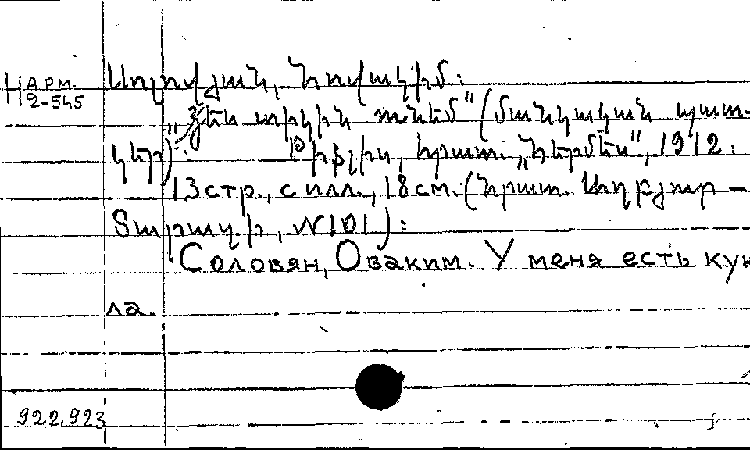 Нарм.
2-545
Սոլովյան, Հովակիմ:
„Ես տիկին ունեմ" (մանկական պատ-
կեր): Թիֆլիս, հրատ. „Հերմես", 1912:
13 стр., с илл., 18 см. (Հրատ. Աղբյուր —
Տարազի, №101):
Соловян, Оваким. У меня есть кук
ла.
922,923